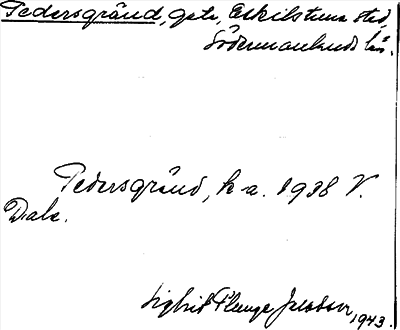 Pedersgränd, gata, Eskilstuna stad,
Södermanlands län.
Pedersgränd, k-a. 1938 V.
Dala.
Sigbrit Plænge Jacobson, 1943.